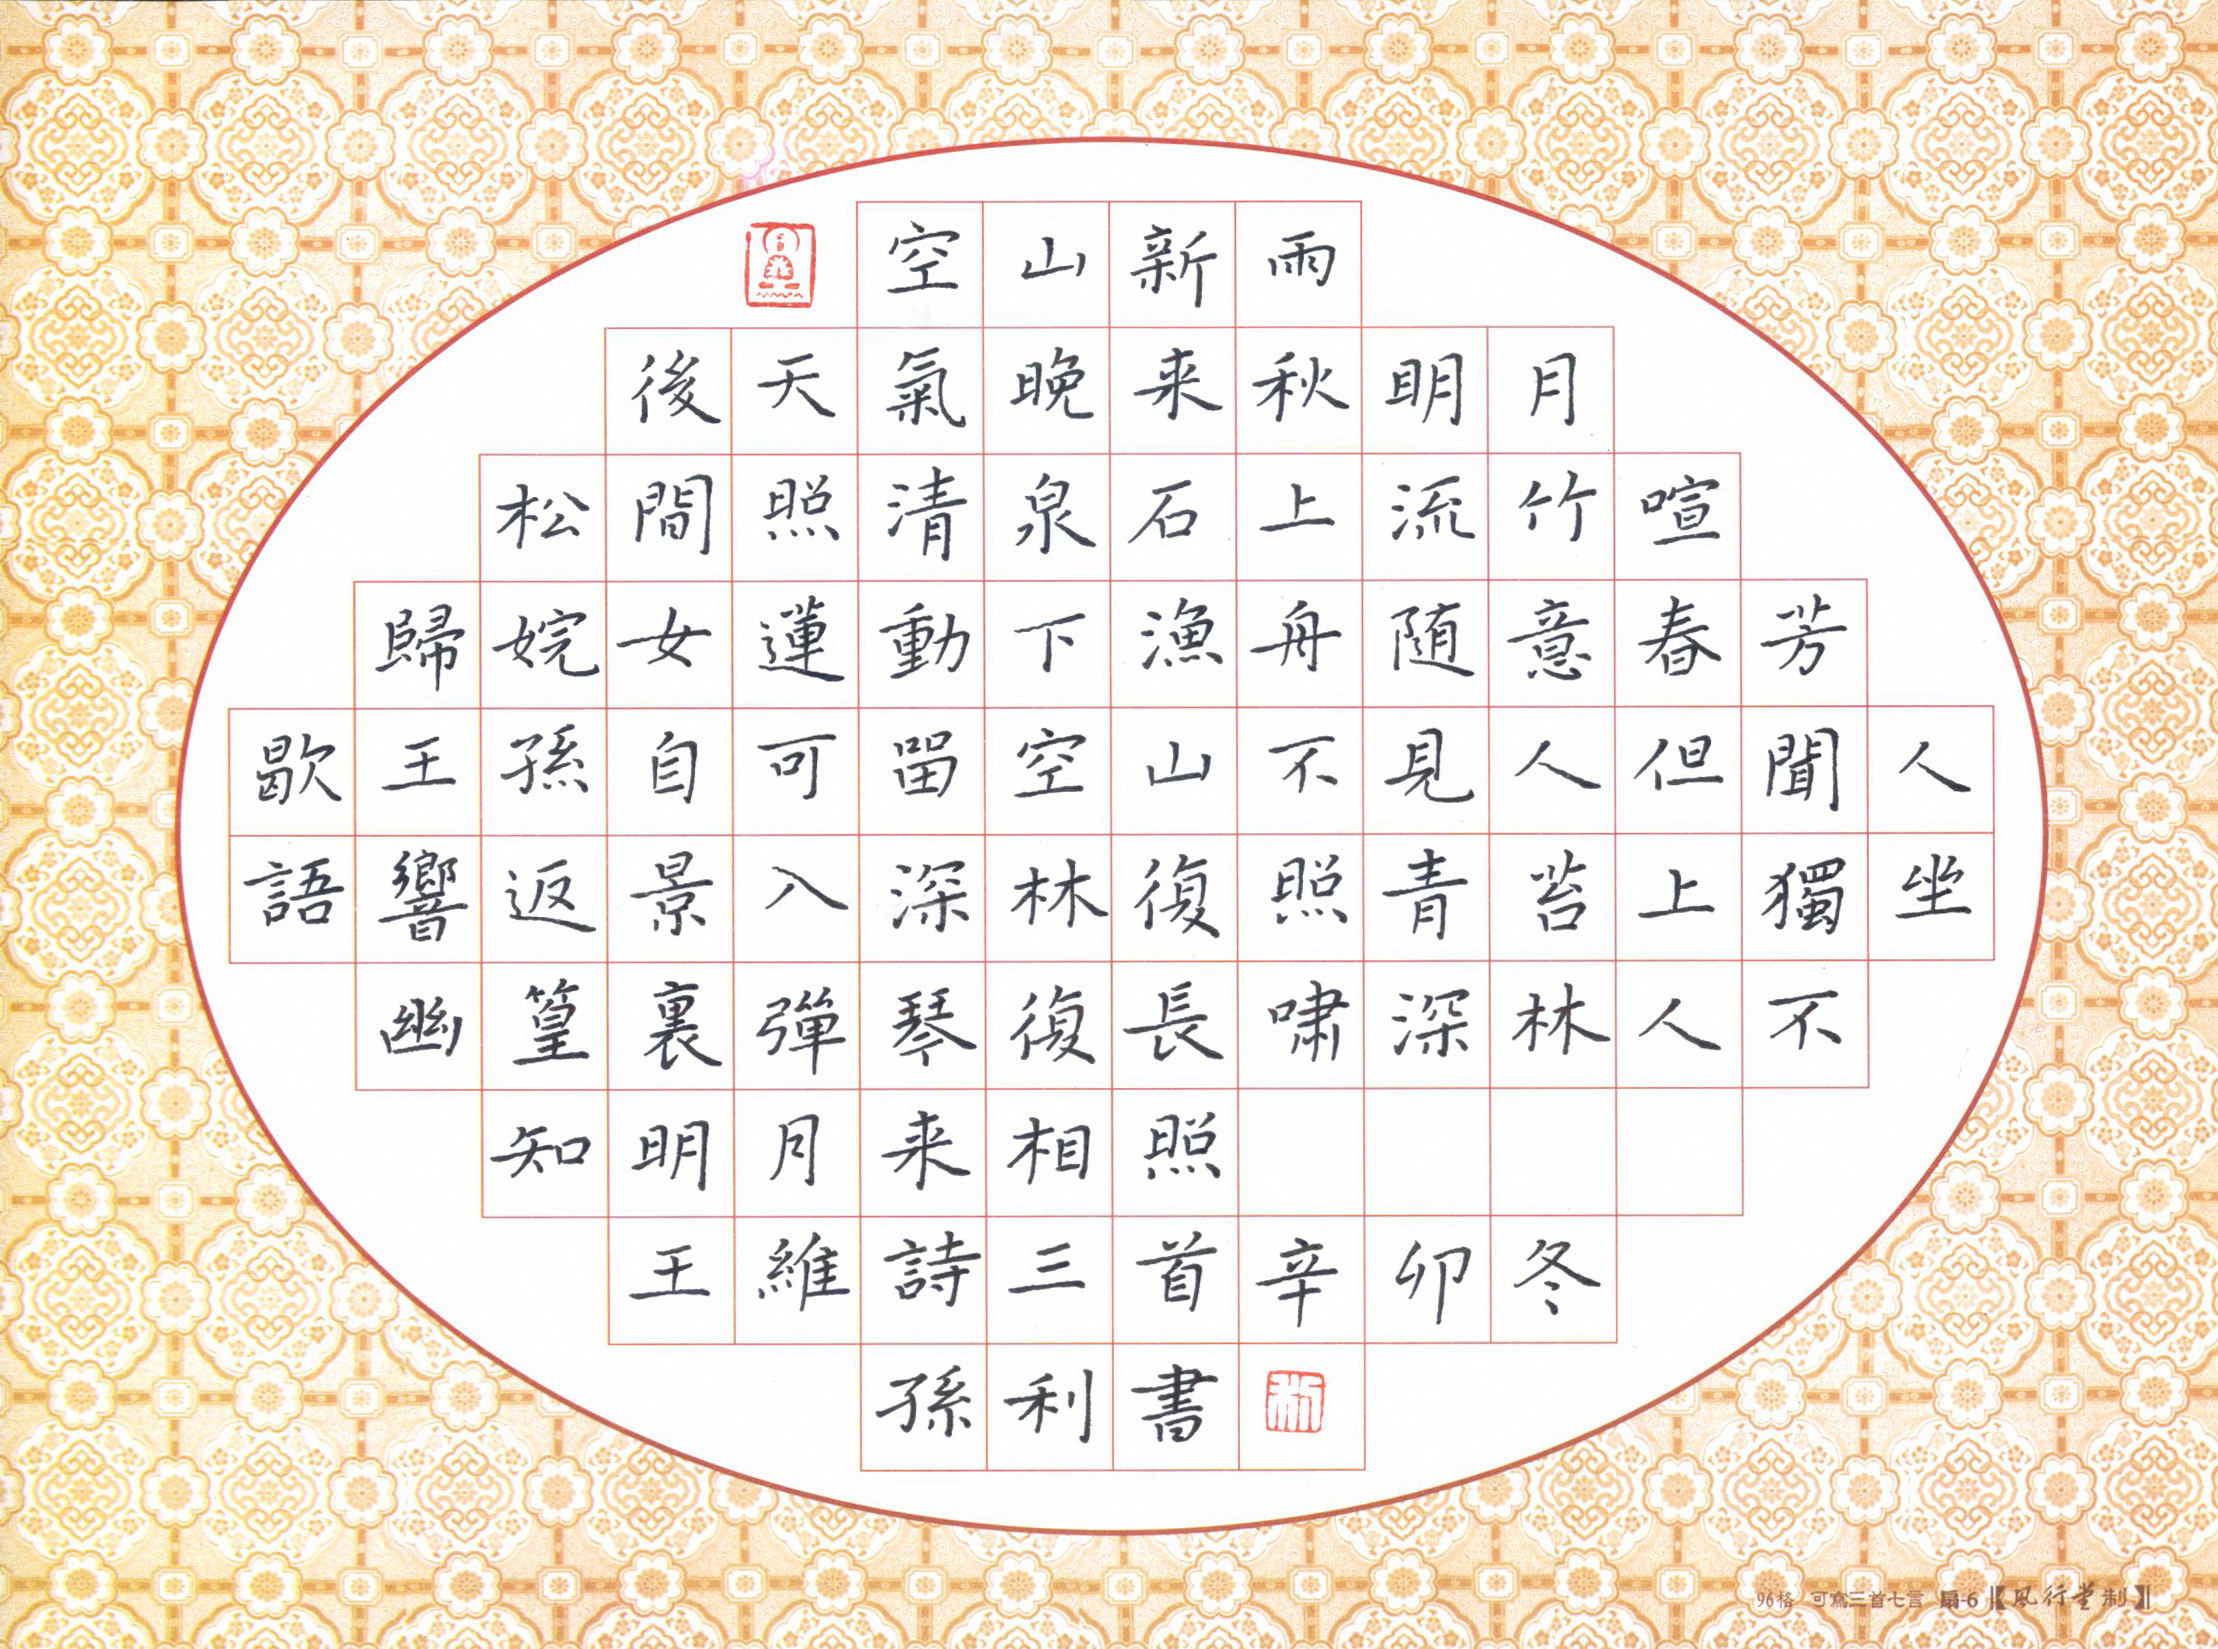 空山新雨
後天氣晚来秋明月
松間照清泉石上流竹喧
歸婉女蓮動下漁舟随意春芳
歇王孫自可留空山不見人但聞人
語響返景入深林復照青苔上獨坐
幽篁裏彈琴復長嘯深林人不
知明月来相照
王維詩三首辛卯冬
孫利書
96格 可寫三首七言 扇-6【風行堂制】